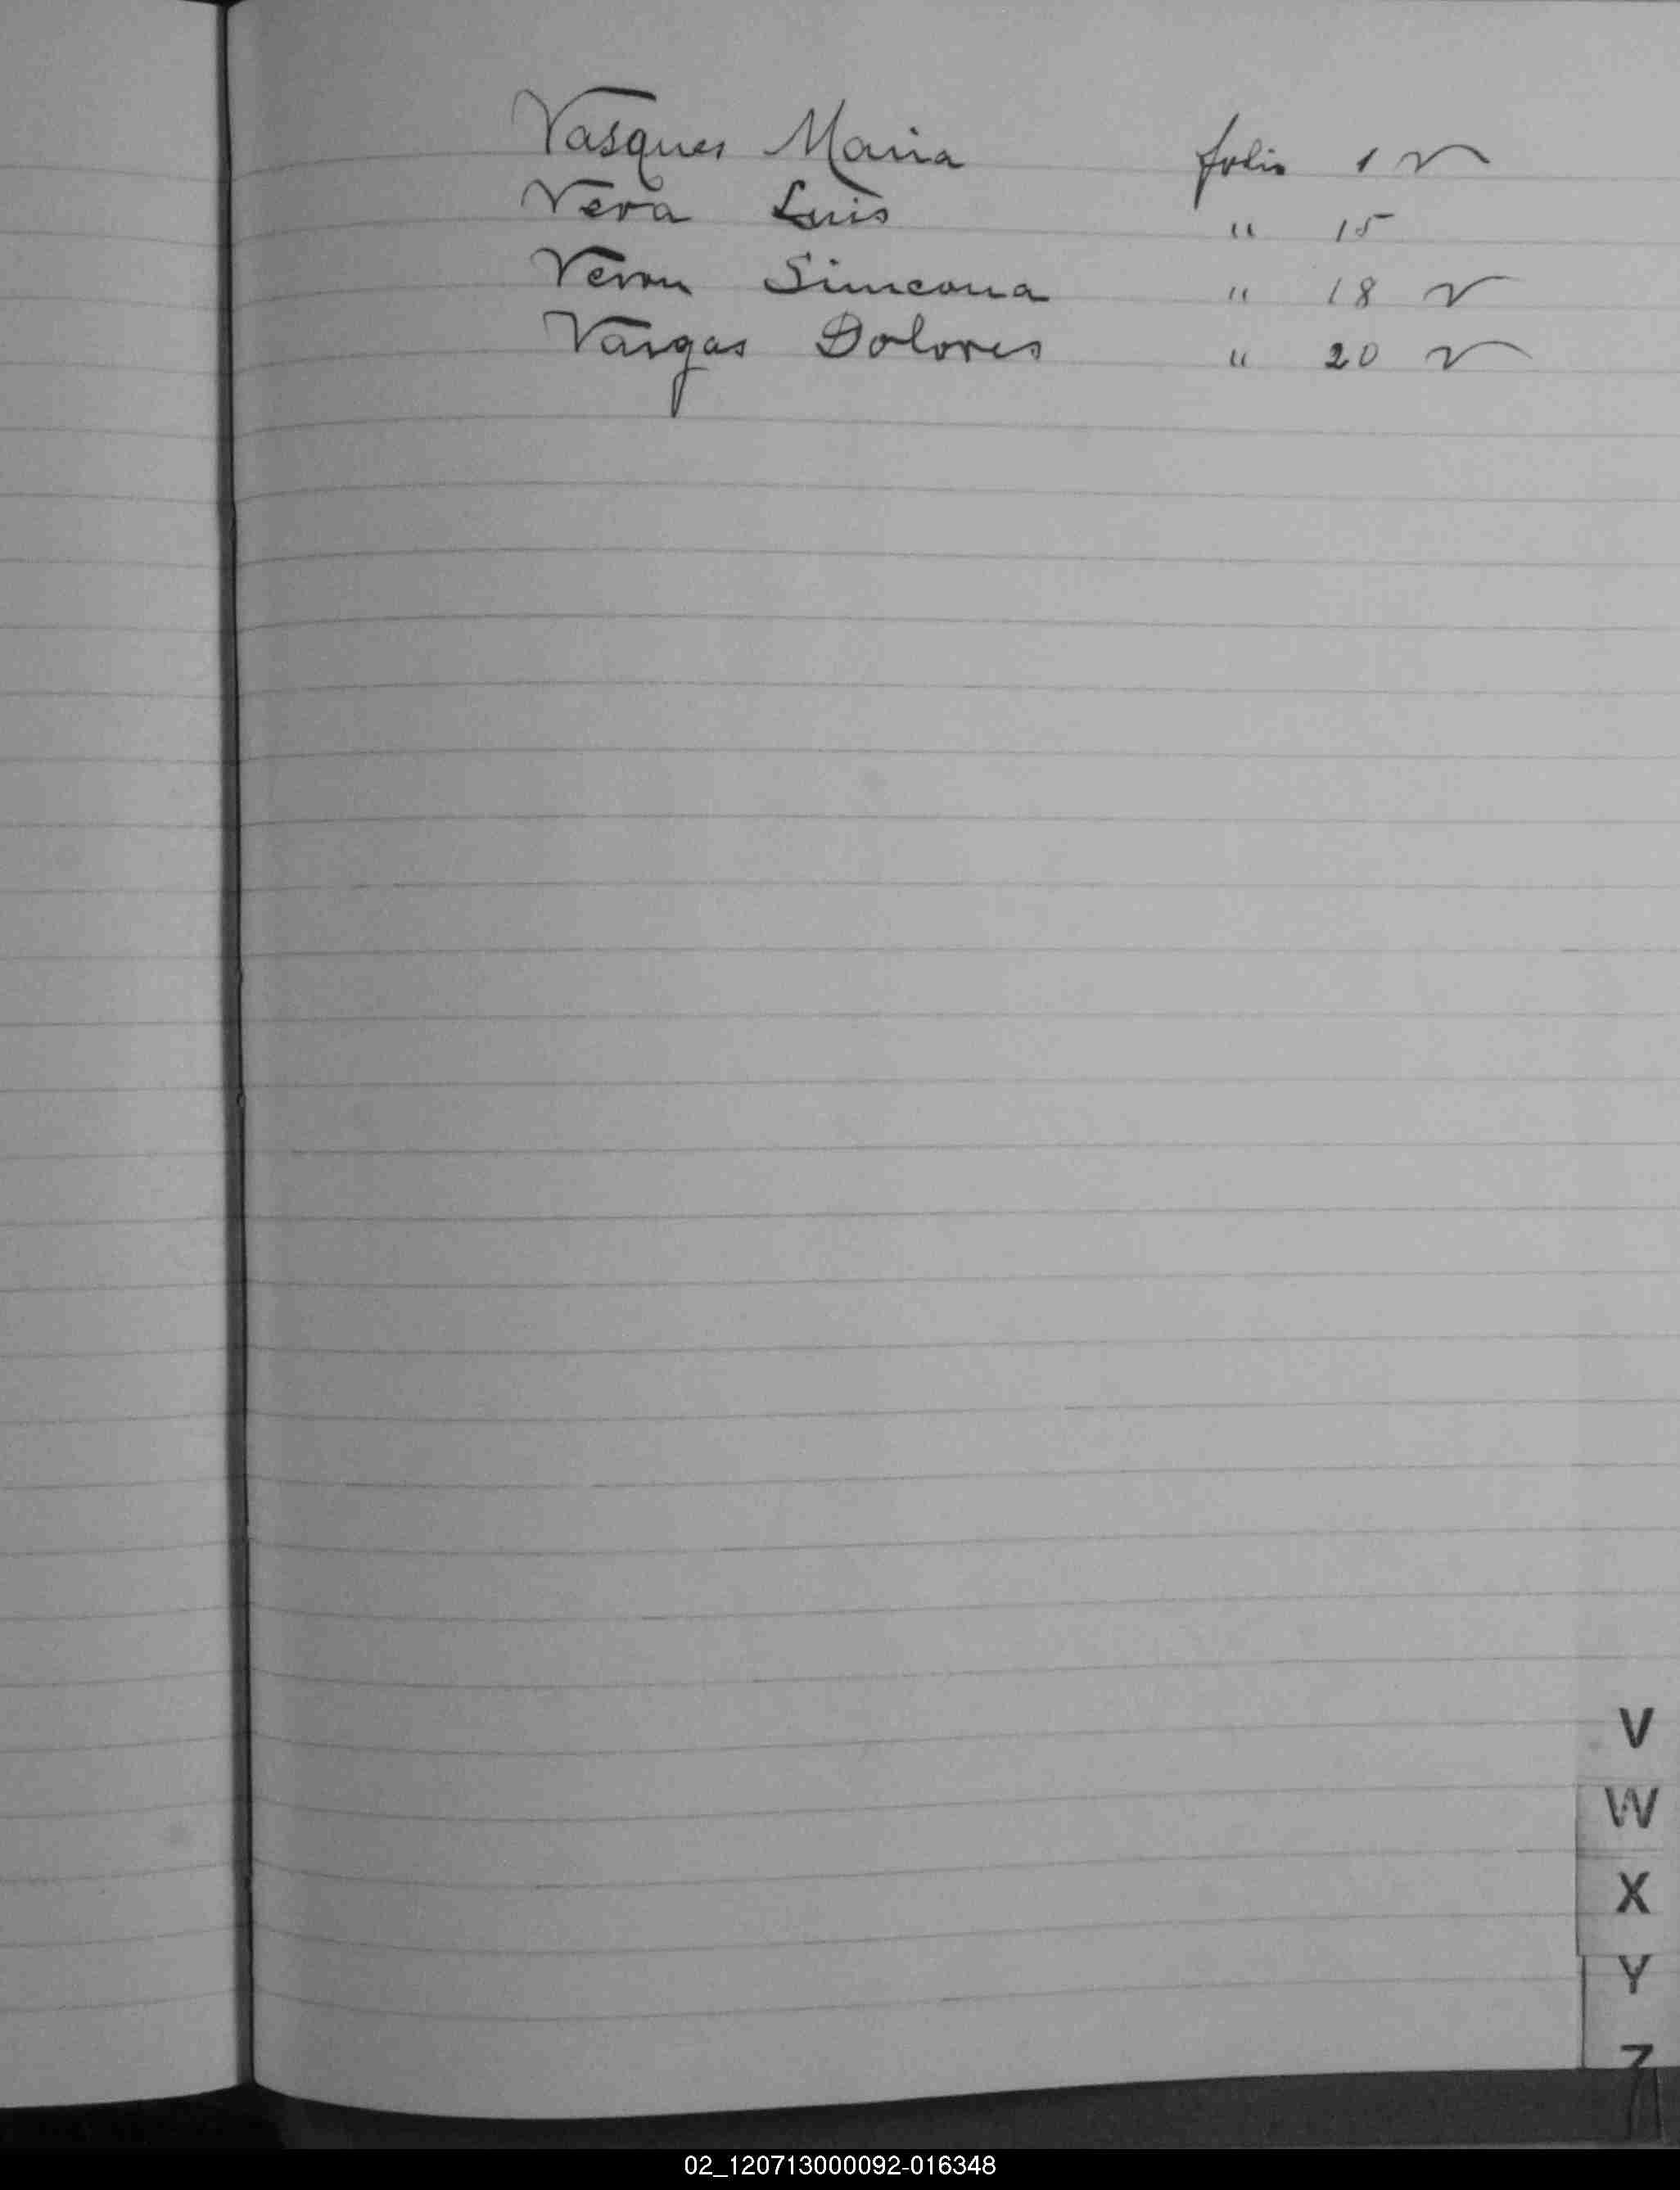 Vasques Maria folio 1 v
Vera Luis " 15
Veron Simeona " 18 v
Vargas Dolores " 20 v
V
W
X
Y
Z
02_120713000092-016348